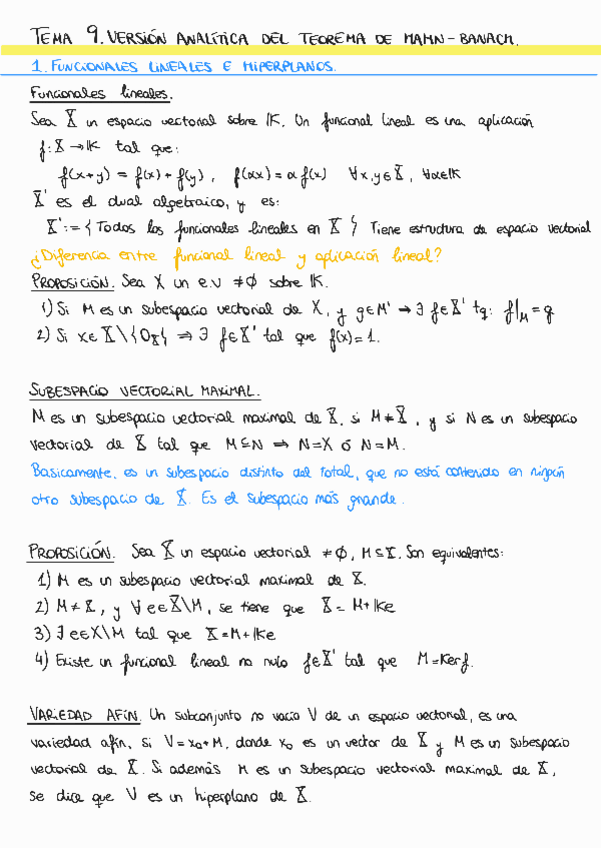 TEMA 9. VERSIÓN ANALÍTICA DEL TEOREMA DE HAHN-BANACH.
1. FUNCIONALES LINEALES E HIPERPLANOS.
Funcionales lineales.
Sea X un espacio vectorial sobre K. Un funcional lineal es una aplicación
f: X → K tal que:
f(x+y) = f(x) + f(y), f(αx) = α f(x) ∀x,y∈X, ∀α∈K
X' es el dual algebraico, y es:
X' := { Todos los funcionales lineales en X } Tiene estructura de espacio vectorial
¿Diferencia entre funcional lineal y aplicación lineal?
PROPOSICIÓN. Sea X un e.v ≠∅ sobre K.
1) Si M es un subespacio vectorial de X, y g∈M' → ∃ f∈X' tq: f|M = g
2) Si x∈X\{0x} ⇒ ∃ f∈X' tal que f(x)=1.
SUBESPACIO VECTORIAL MAXIMAL.
M es un subespacio vectorial maximal de X, si M≠X, y si N es un subespacio
vectorial de X tal que M⊆N ⇒ N=X ó N=M.
Basicamente, es un subespacio distinto del total, que no está contenido en ningún
otro subespacio de X. Es el subespacio más grande.
PROPOSICIÓN. Sea X un espacio vectorial ≠∅, M⊆X. Son equivalentes:
1) M es un subespacio vectorial maximal de X.
2) M≠X, y ∀e∈X\M, se tiene que X = M+Ke
3) ∃ e∈X\M tal que X=M+Ke
4) Existe un funcional lineal no nulo f∈X' tal que M=Kerf.
VARIEDAD AFÍN. Un subconjunto no vacío V de un espacio vectorial, es una
variedad afín, si V=x0+M, donde x0 es un vector de X y M es un subespacio
vectorial de X. Si además M es un subespacio vectorial maximal de X,
se dice que V es un hiperplano de X.